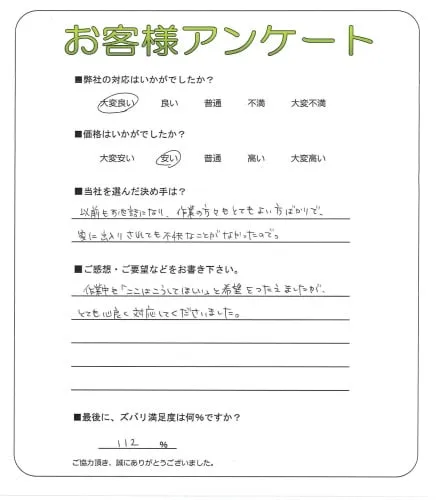 お客様アンケート
■弊社の対応はいかがでしたか？
大変良い 良い 普通 不満 大変不満
■価格はいかがでしたか？
大変安い 安い 普通 高い 大変高い
■当社を選んだ決め手は？
以前もお世話になり、作業の方々もとてもよい方ばかりで、
家に出入りされても不快なことがなかったので。
■ご感想・ご要望などをお書き下さい。
作業中も「ここはこうしてほしい」と希望をつたえましたが、
とても心良く対応してくださいました。
■最後に、ズバリ満足度は何％ですか？
112 ％
ご協力頂き、誠にありがとうございました。